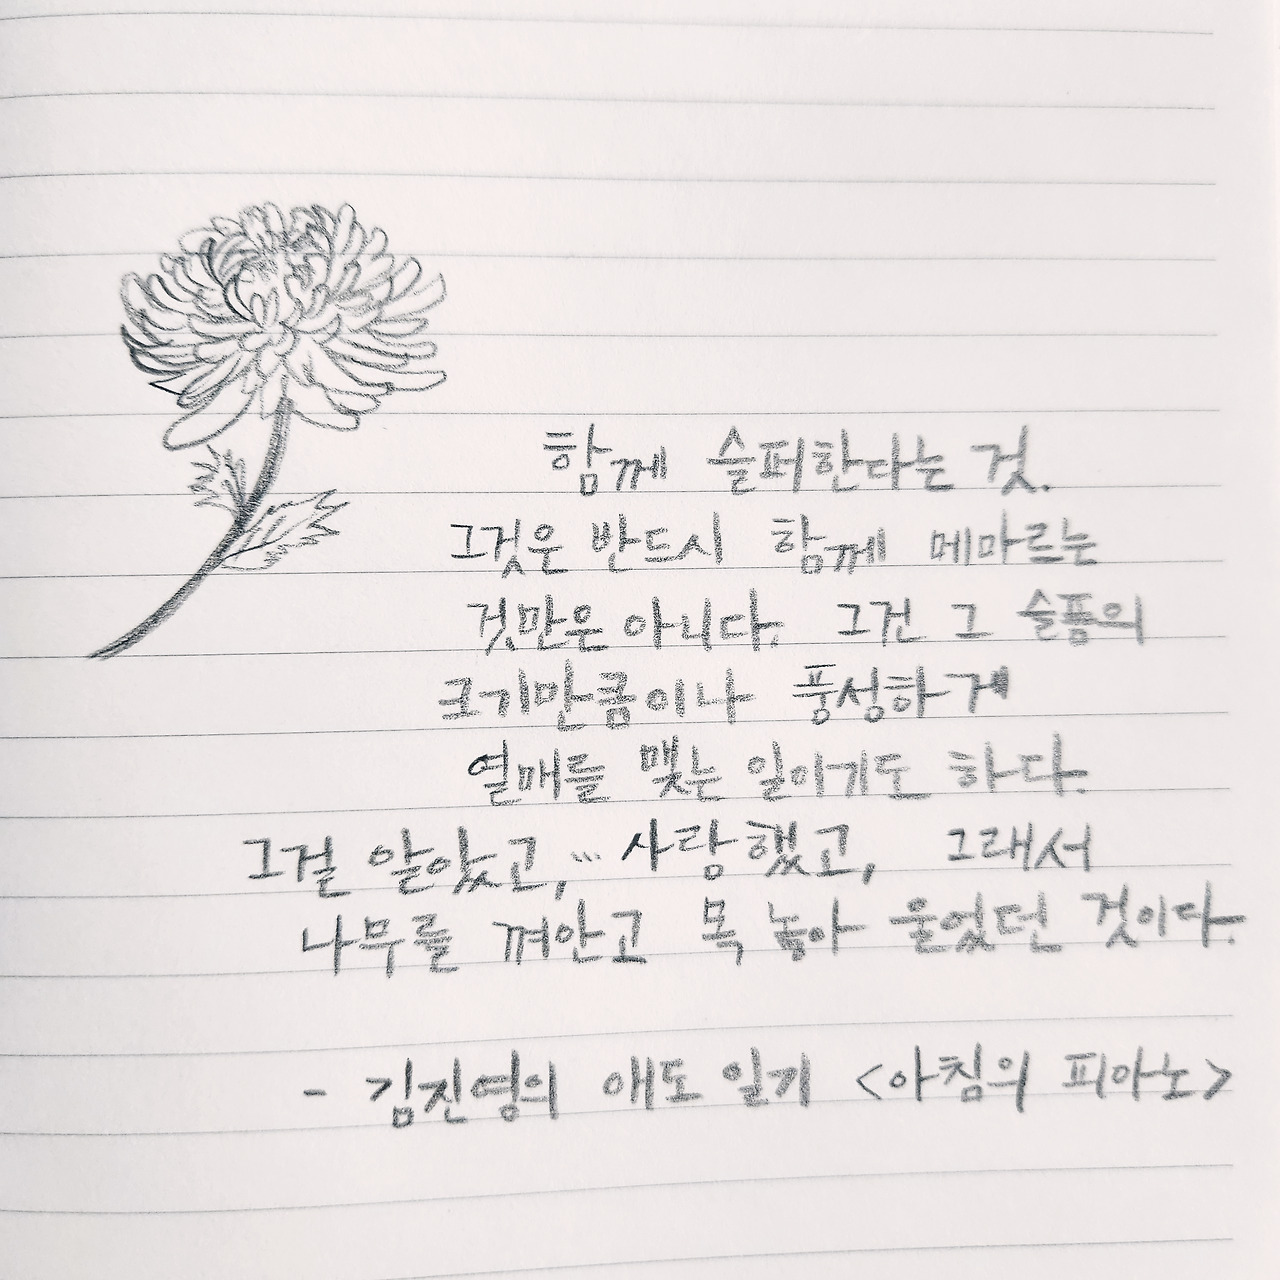 함께 슬퍼한다는 것.
그것은 반드시 함께 메마르는
것만은 아니다. 그건 그 슬픔의
크기만큼이나 풍성하게
열매를 맺는 일이기도 하다.
그걸 알았고,… 사랑했고, 그래서
나무를 껴안고 목 놓아 울었던 것이다.
- 김진영의 애도 일기 <아침의 피아노>